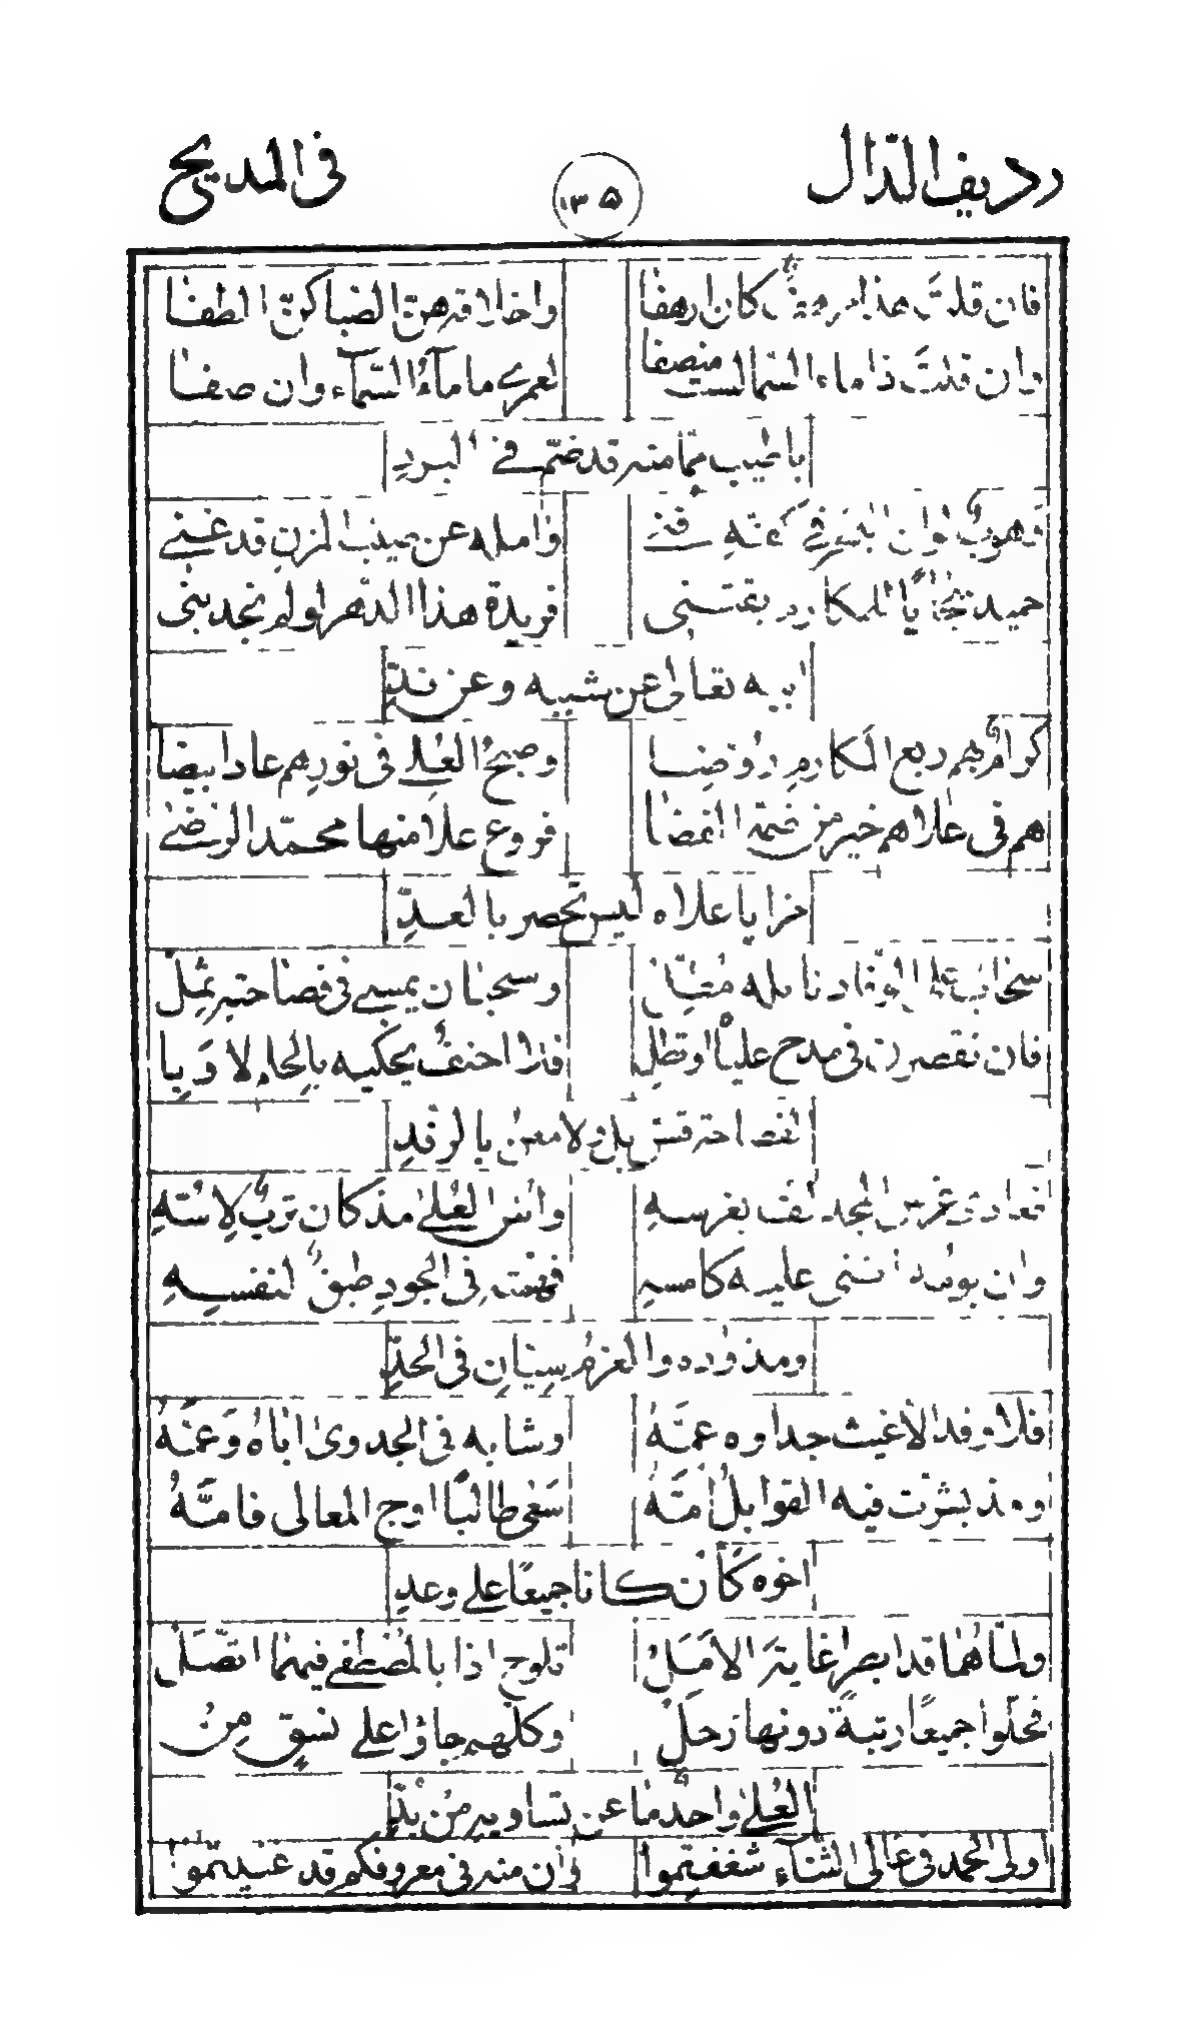 رديف الدال
١٣٥
في المديح
فان قلت هذا مرهف كان ارهفا
واخلاقه هن الصبا كن الطفا
وان قلت ذا ماء السما لست منصفا
لعمرى ما ماء السمآء وان صفا
باطيب مما منه قد ضم في البرد
وهوب لوان في كفه فني
وامله عن صيب المزن قد غني
حميد للمكارم يقتني
فريدة هذا الدهر لو لم تجد بنى
ابيه تعالى عن شبيه وعن ند
كرام بهم ربع المكارم روضا
وصبح العلى في نورهم عاد ابيضا
هم في علاهم خير من غمته الفضا
فروع علا منها محمد الرضى
مزايا علاه ليس تحصر بالعد
سحاب على الوفاد نائله
وسحبان يمسي في فصاحته يمثل
فان تقصرن في مدح علياه او تطل
فلا احنف يحكيه بالحلم لا ولا
الفصاحة قس بل ولا معن بالرفد
فعادى غرس المجد بغرسه
وانس العلى مذ كان ترب لانسه
وان يومه اثنى عليه كامسه
في الجود طبق لنفسه
ومذ والعزم سيان في الحد
فلا وفد الا غيث جدواه عمه
وشابه في الجدوى اباه وعمه
ومذ بشرت فيه القوابل امه
سعى طالبا اوج المعالى فامه
اخوه كأن كانا جميعا على وعد
ولما هما قد ابصرا غاية الامل
تلوح اذا بالمصطفى فيهما اتصل
فحلوا جميعا رتبة دونها زحل
وكلهم جاؤا على نسق من
العلى واحد ما عن تساويه من بد
اولى الحمد في عالى الثنآء شغفتموا
وان منه في معروفكم قد عنيتموا